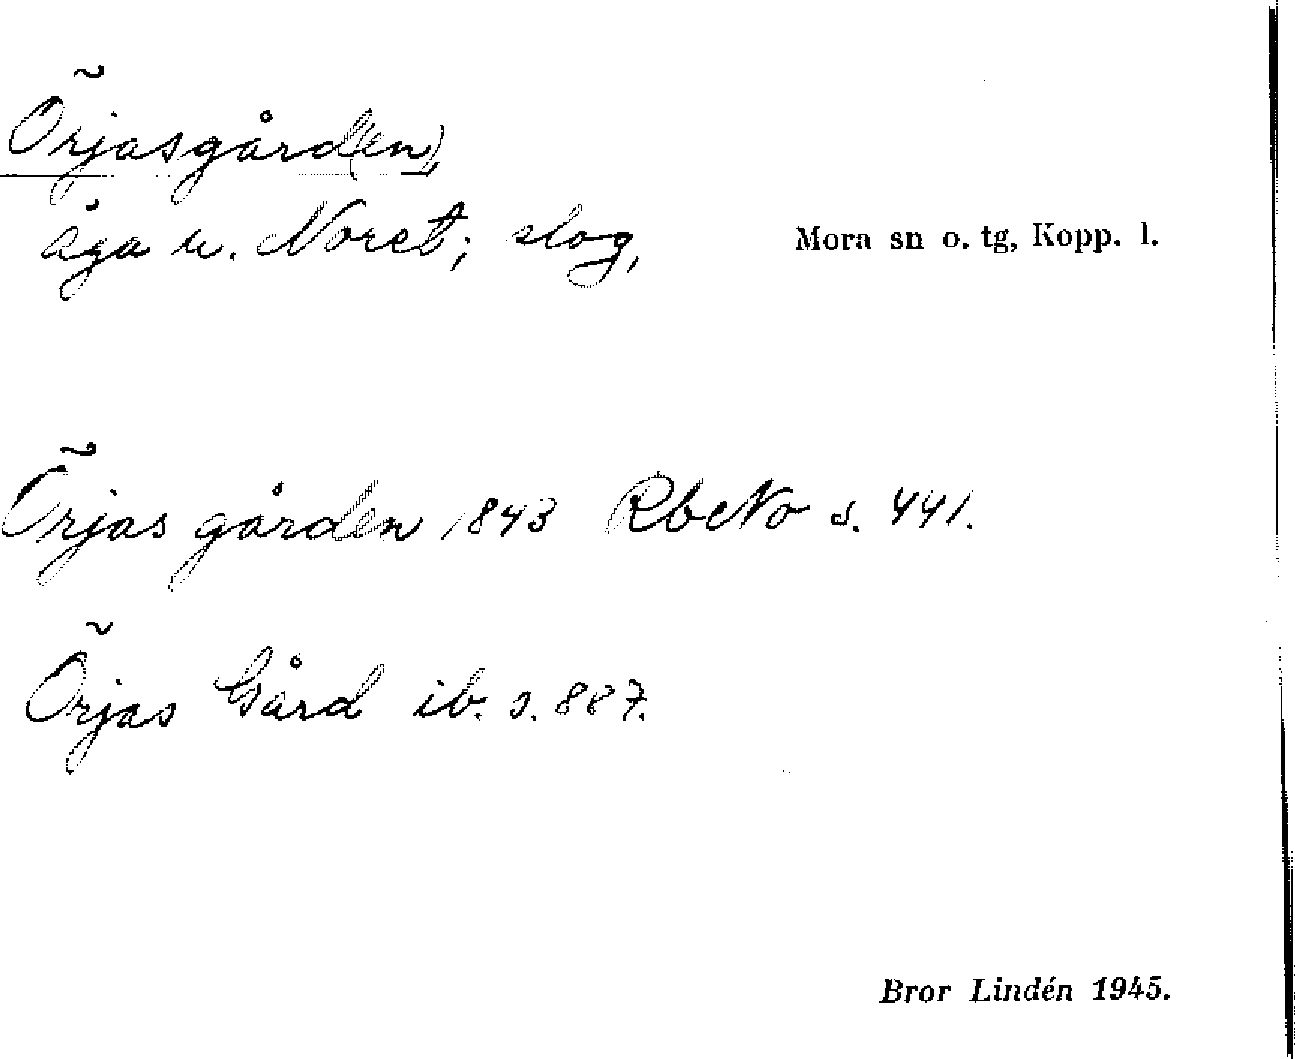 Örjasgård(en),
äga u. Noret; slog,
Mora sn o. tg, Kopp. l.
Örjas gården 1843 RbcNo s. 441.
Örjas Gård ib. s. 887.
Bror Lindén 1945.